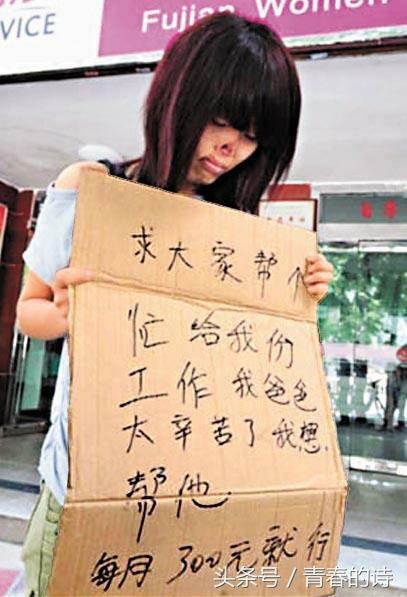 ERVICE
Fujian Women
求大家帮个
忙给我份
工作我爸爸
太辛苦了我想
帮他
每月300元就行
头条号/青春的诗